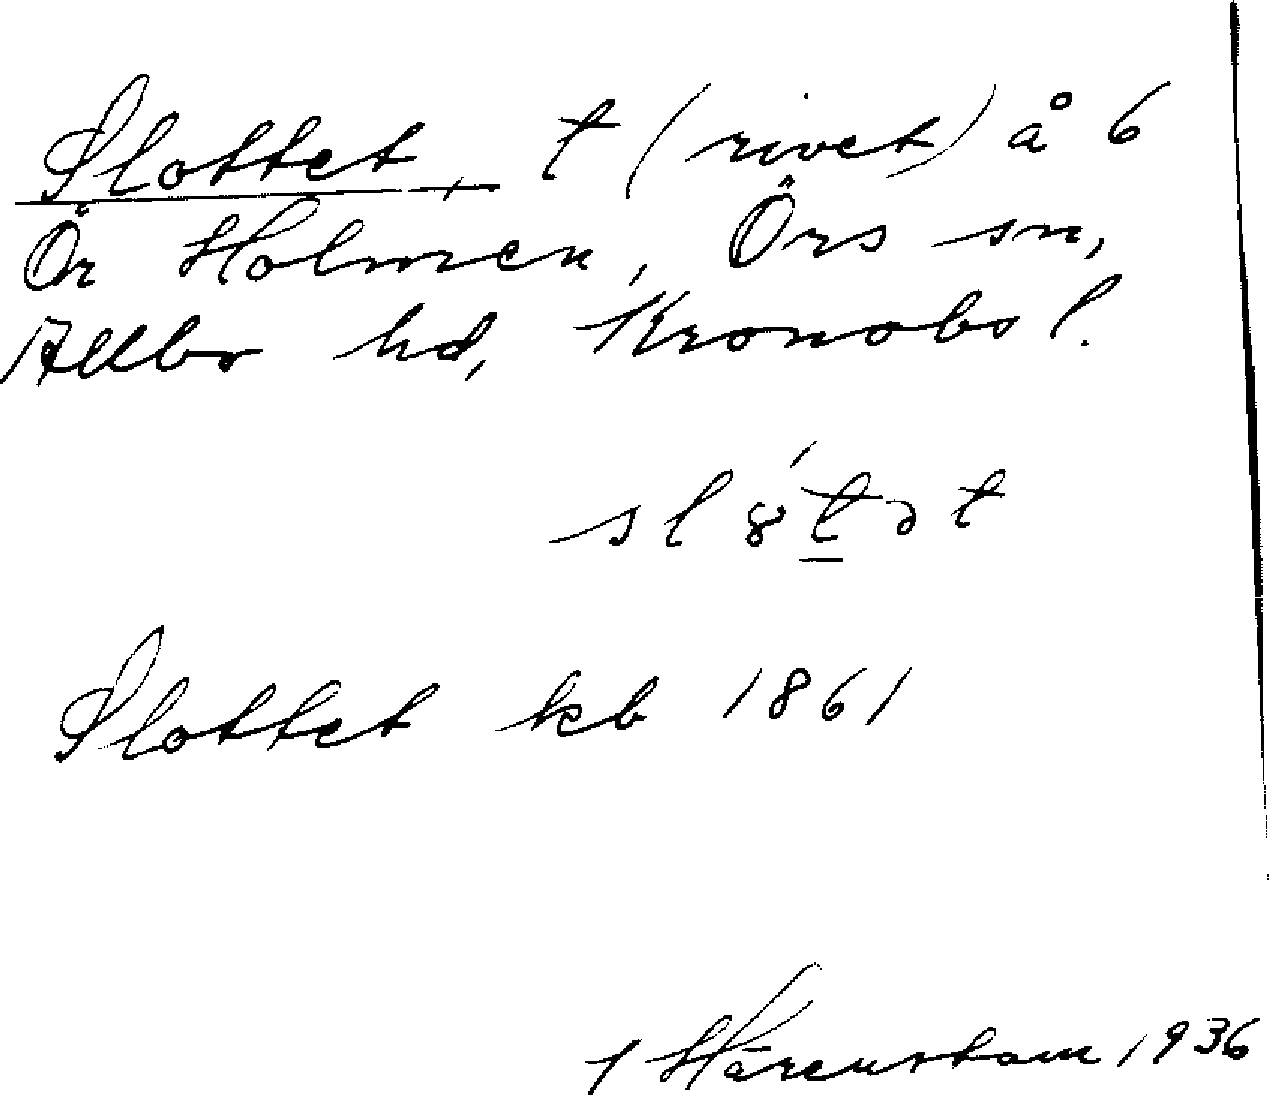 Slottet, t (rivet) å 6
Ör Holmen, Örs sn,
Allbo hd, Kronobs l.
sl8́t̲ət
Slottet kb 1861
Härenstam 1936